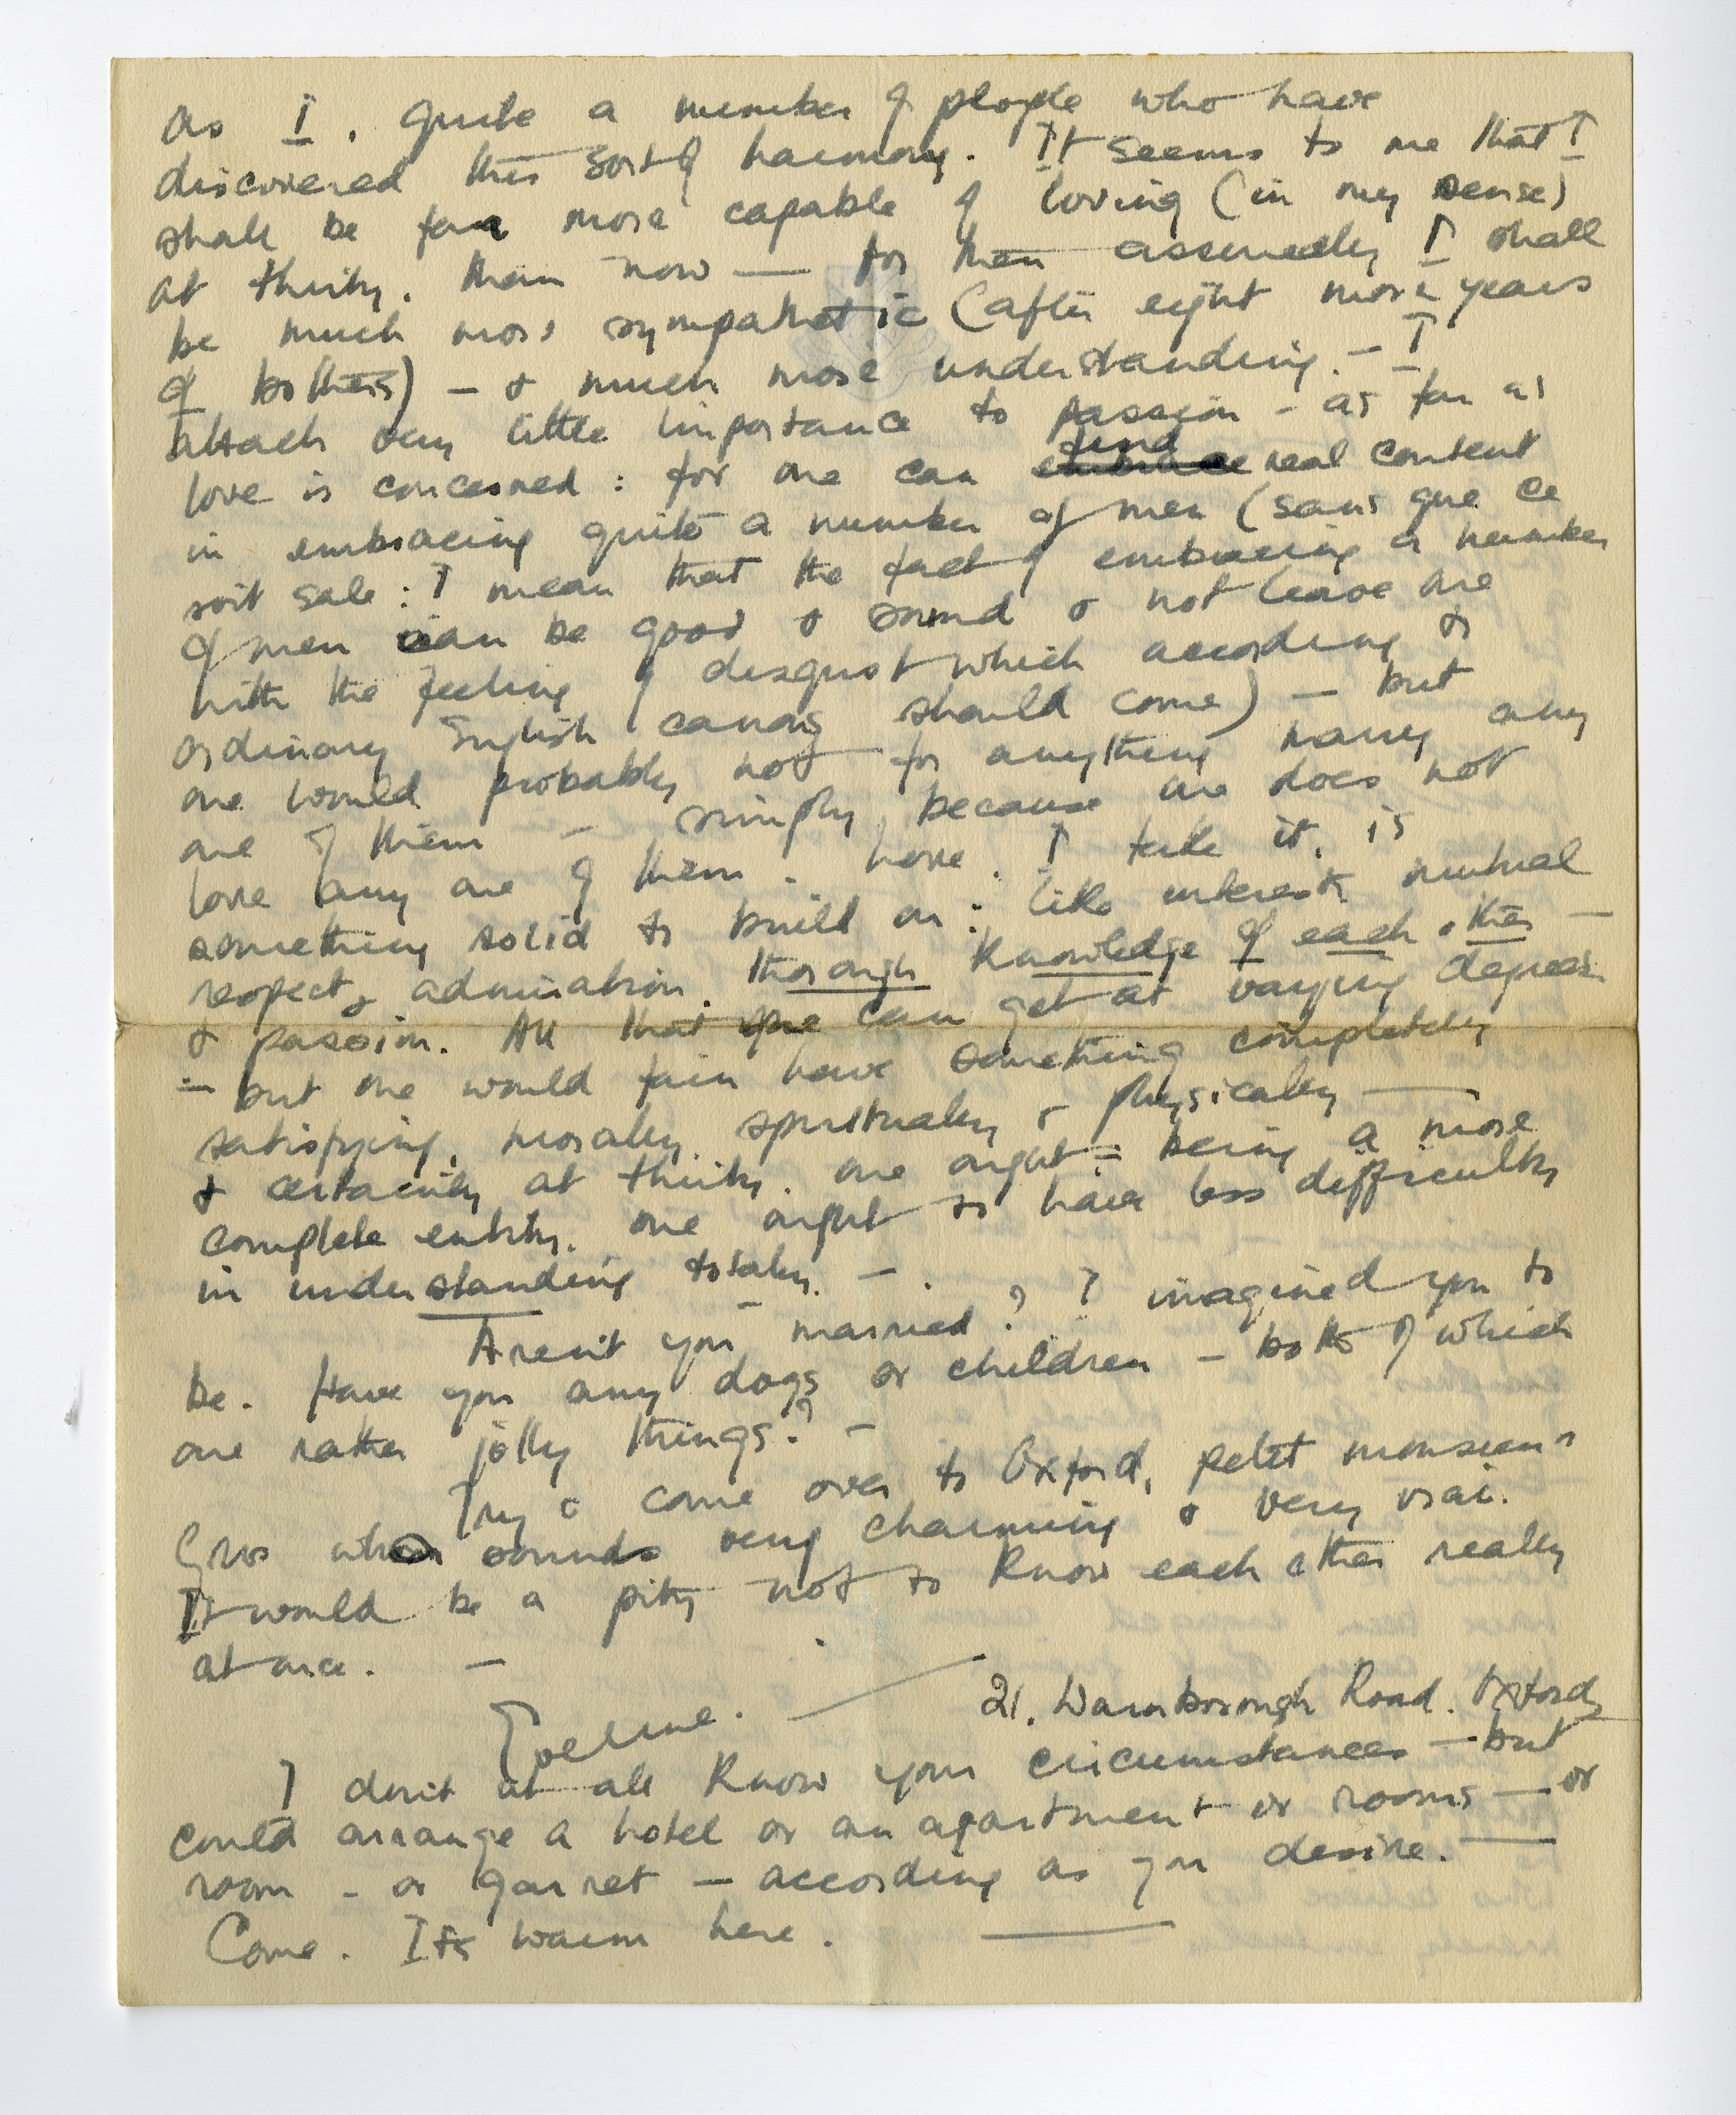 as I, quite a number of people who have
discovered this sort of harmony. It seems to me that I
shall be far more capable of loving (in my sense)
at thirty, than now — for then assuredly I shall
be much more sympathetic (after eight more years
of bothers) – & much more understanding. – I
attach very little importance to passion – as far as
love is concerned : for one can find real content
in embracing quite a number of men (sans que ce
soit sale : I mean that the fact of embracing a number
of men can be good & sound & not leave one
with the feeling of disgust which according to
ordinary English canons should come) – but
one would probably not for anything marry any
one of them – simply because one does not
love any one of them. Love, I take it, is
something solid to build on : like interests mutual
respect & admiration, thorough knowledge of each other –
& passion. All that one can get at varying degrees
– but one would fain have something completely
satisfying, morally, spiritually & physically —
& certainly at thirty, one ought – being a more
complete entity, one ought to have less difficulty
in understanding totally. –
Aren't you married? I imagined you to
be. Have you any dogs or children – both of which
are rather jolly things? –
Try & come over to Oxford, petit monsieur
Gros sounds very charming & very vrai.
It would be a pity not to know each other really
at once. –
21, Warnborough Road. Oxford
I don't at all know your circumstances – but
could arrange a hotel or an apartment or rooms — or
room – or garret – according as you desire. —
Come. Its warm here. —